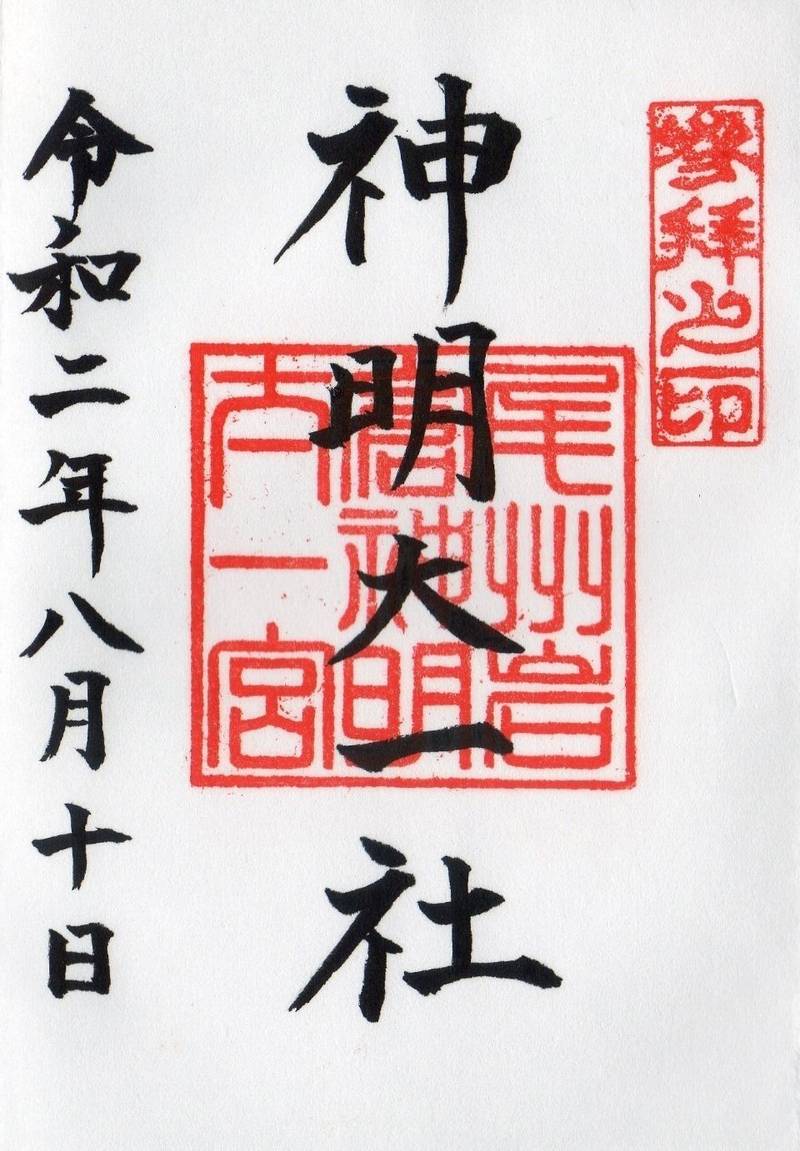 參拜之印
神明大一社
尾州岩
倉神明
大一宮
令和二年八月十日